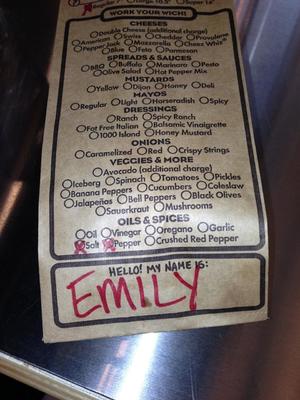 Regular 7" Large 10.5" Super 14"
WORK YOUR WICH!
CHEESES
Double Cheese (additional charge)
American Swiss Cheddar Provolone
Pepper Jack Mozzarella Cheez Whiz®
Blue Feta Parmesan
SPREADS & SAUCES
BBQ Buffalo Marinara Pesto
Olive Salad Hot Pepper Mix
MUSTARDS
Yellow Dijon Honey Deli
MAYOS
Regular Light Horseradish Spicy
DRESSINGS
Ranch Spicy Ranch
Fat Free Italian Balsamic Vinaigrette
1000 Island Honey Mustard
ONIONS
Caramelized Red Crispy Strings
VEGGIES & MORE
Avocado (additional charge)
Iceberg Spinach Tomatoes Pickles
Banana Peppers Cucumbers Coleslaw
Jalapeños Bell Peppers Black Olives
Sauerkraut Mushrooms
OILS & SPICES
Oil Vinegar Oregano Garlic
Salt Pepper Crushed Red Pepper
HELLO! MY NAME IS:
EMILY